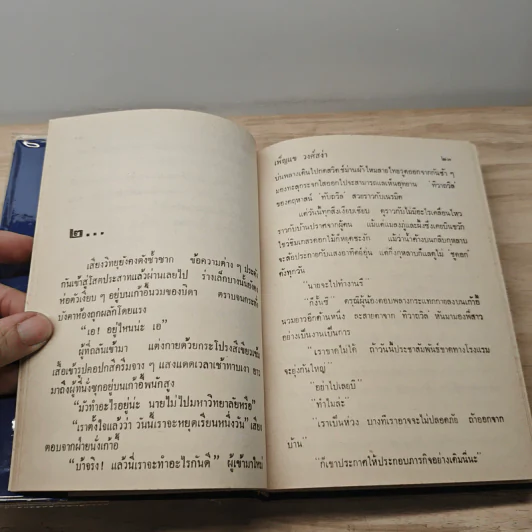 ๒...
เสียงวิทยุยังคงดังซ้ำซาก ข้อความต่าง ๆ ประดัง
กันเข้าสู่โสตประสาทแล้วผ่านเลยไป ร่างเล็กบางนั้นยังคง
ห่อตัวเงียบ ๆ อยู่บนเก้าอี้นวมของบิดา ตราบจนกระทั่ง
บังตาห้องถูกผลักโดยแรง
“เอ! อยู่ไหนน่ะ เอ”
ผู้ที่ถลันเข้ามา แต่งกายด้วยกระโปรงสีเขียวเข้ม
เสื้อเชิ้ตรูปคอปกสีครีมจาง ๆ แสงแดดเวลาเช้าทาบเงา
มาถึงผู้ที่นั่งซุกอยู่บนเก้าอี้พนักสูง
“มัวทำอะไรอยู่น่ะ นายไม่ไปมหาวิทยาลัยหรือ”
“เราตั้งใจแล้วว่า วันนี้เราจะหยุดเรียนหนึ่งวัน” เสียง
ตอบจากฝ่ายนั่งเก้าอี้
“บ้าจริง! แล้วนี่เราจะทำอะไรกันดี” ผู้เข้ามาใหม่
เพ็ญแข วงศ์สง่า ๒๓
บ่นพลางเดินไปกดสวิตช์ม่านผ้าไหมลายไทยรูดออกจากกันช้า ๆ
มองทะลุกระจกใสออกไปจะสามารถแลเห็นสุดยาน ‘ทิวาถวิล’
ของคฤหาสน์ ‘คืบถวิล’ สวยราวกับเนรมิต
แต่วันนี้ทุกสิ่งเงียบเชียบ ดูราวกับไม่มีอะไรเคลื่อนไหว
ราวกับบ้านปราศจากผู้คน แม้แต่แมงภู่และผึ้งซึ่งเคยบินขวัก
ไขว่ชิมเกสรดอกไม้ก็หยุดชะงัก แม้ว่าน้ำค้างบนกลีบกุหลาบ
จะส่งประกายกับแสงอาทิตย์อุ่น แต่กิ่งกุหลาบก็แลดูไม่ ชูดอก
ดังทุกวัน
“นายจะไปทำงานรึ”
“ก็งั้นซี” ดรุณีผู้น้องตอบพลางกระแทกกายลงบนเก้าอี้
นวมยาวอีกด้านหนึ่ง ละสายตาจาก ‘ทิวาถวิล’ หันมามองพี่สาว
อย่างเป็นงานเป็นการ
“เราขาดไม่ได้ ถ้าวันนี้ประชาสัมพันธ์ขาดทางโรงแรม
จะยุ่งกันใหญ่”
“อย่าไปเลยบี”
“ทำไมล่ะ”
“เราเป็นห่วง บางทีเราอาจจะไม่ปลอดภัย ถ้าออกจาก
บ้าน”
“ก็เขาประกาศให้ประกอบภารกิจอย่างเดิมนี่นะ”